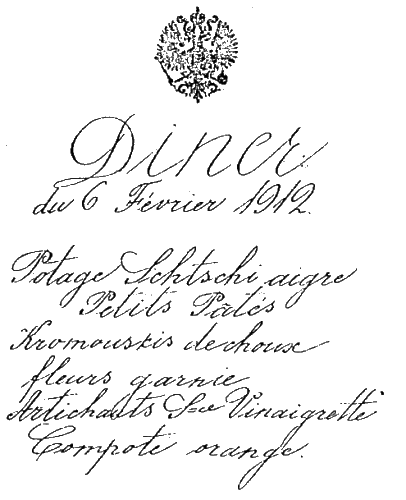 Diner
du 6 Février 1912.
Potage Schtschi aigre
Petits Pâtés
Kromouskis de choux
fleurs garnie
Artichauts Sce Vinaigrette
Compote orange.